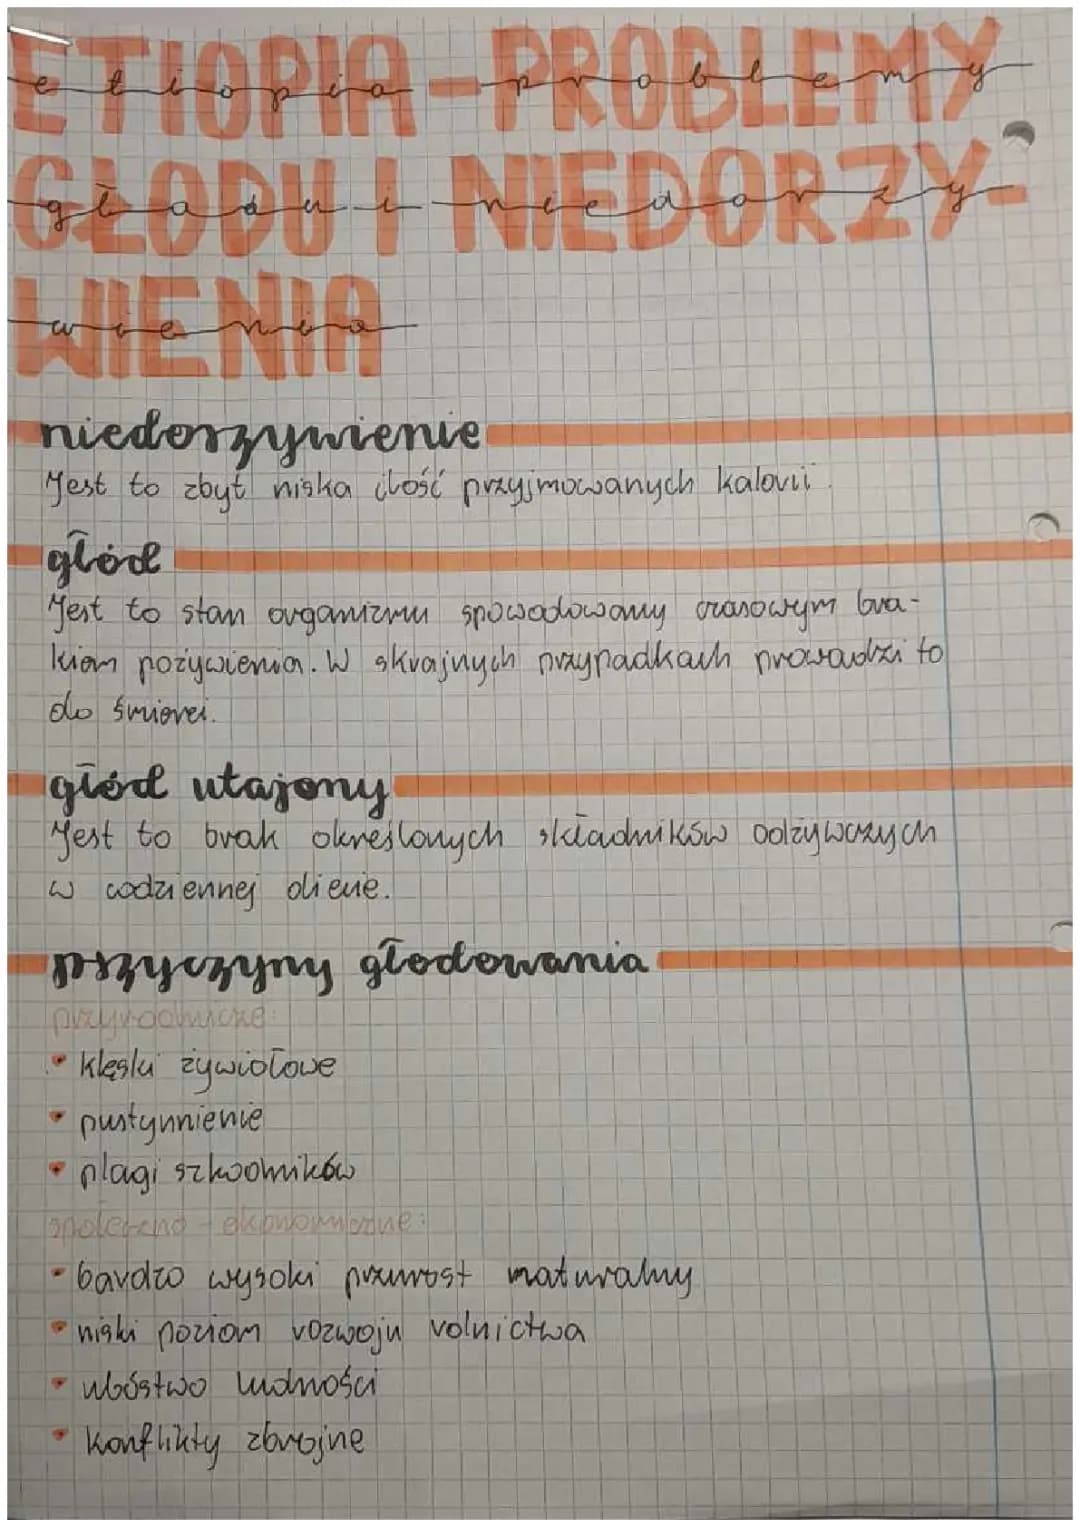 ETIOPIA - PROBLEMY
etiopia - problemy
GŁODU I NIEDORZY-
głodu i niedorzy-
WIENIA
wienia
niedorzywienie
Jest to zbyt niska ilość przyjmowanych kalorii.
głód
Jest to stan organizmu spowodowany czasowym bra-
kiem pożywienia. W skrajnych przypadkach prowadzi to
do śmierci.
głód utajony
Jest to brak określonych składników odżywczych
w codziennej diecie.
przyczyny głodowania
przyrodnicze:
• klęski żywiołowe
• pustynnienie
• plagi szkodników
społeczno - ekonomiczne:
• bardzo wysoki przyrost naturalny
• niski poziom rozwoju rolnictwa
• ubóstwo ludności
• konflikty zbrojne